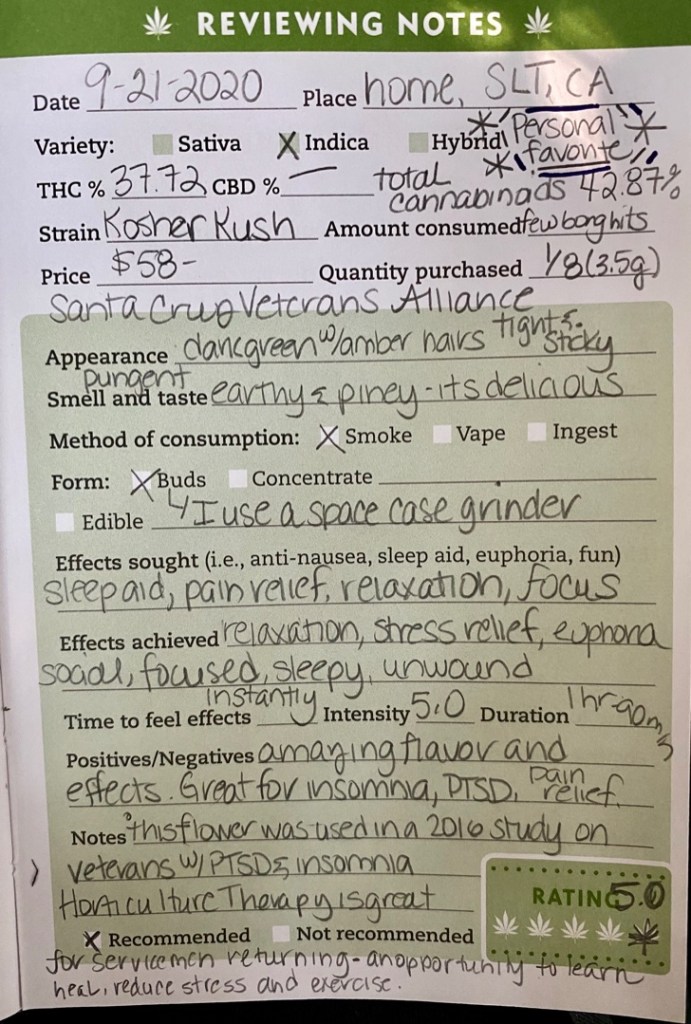 REVIEWING NOTES
Date 9-21-2020 Place home, SLT, CA
Variety: Sativa X Indica Hybrid * "Personal *
* favorite"
THC % 37.72 CBD % — total
cannabinoids 42.87%
Strain Kosher Kush Amount consumed few bong hits
Price $58- Quantity purchased 1/8 (3.5g)
Santa Cruz Veterans Alliance
Appearance dancgreen w/amber hairs tight & sticky
pungent
Smell and taste earthy & piney - its delicious
Method of consumption: X Smoke Vape Ingest
Form: X Buds Concentrate
Edible I use a space case grinder
Effects sought (i.e., anti-nausea, sleep aid, euphoria, fun)
sleep aid, pain relief, relaxation, focus
Effects achieved relaxation, stress relief, euphoria
social, focused, sleepy, unwound
Time to feel effects instantly Intensity 5.0 Duration 1hr-90m
Positives/Negatives amazing flavor and
effects. Great for insomnia, PTSD, pain relief.
Notes this flower was used in a 2016 study on
veterans w/ PTSD & insomnia
Horticulture Therapy is great
RATING 5.0
X Recommended Not recommended
for servicemen returning - an opportunity to learn
heal, reduce stress and exercise.